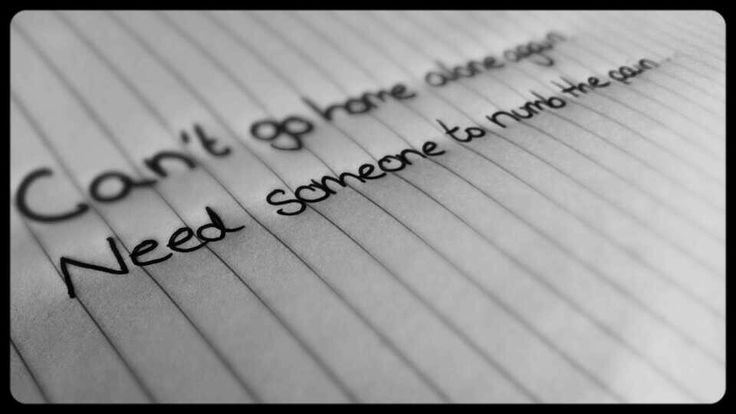 Can't go home alone again
Need someone to numb the pain